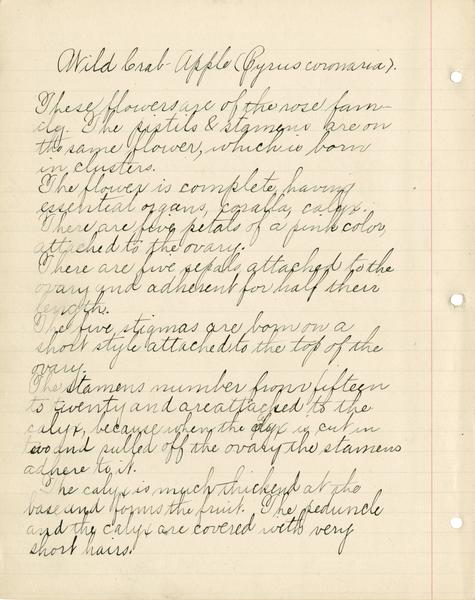 Wild Crab-Apple (Pyrus coronaria).
These flowers are of the rose fam-
ily. The pistils & stamens are on
the same flower, which is born
in clusters.
The flower is complete, having
essential organs, coralla, calyx.
There are five petals of a pink color,
attached to the ovary.
There are five sepals, attached to the
ovary and adherent for half their
length.
The five stigmas are born on a
short style attached to the top of the
ovary.
The stamens number from fifteen
to twenty and are attached to the
calyx, because when the calyx is cut in
two and pulled off the ovary the stamens
adhere to it.
The calyx is much thickend at the
base and forms the fruit. The peduncle
and the calyx are covered with very
short hairs.